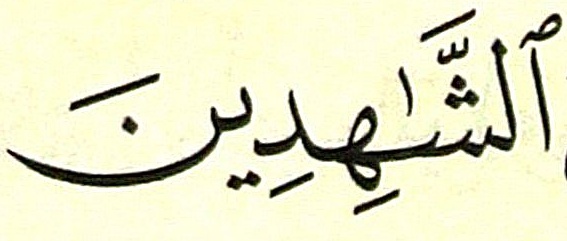 ٱلشَّـٰهِدِينَ